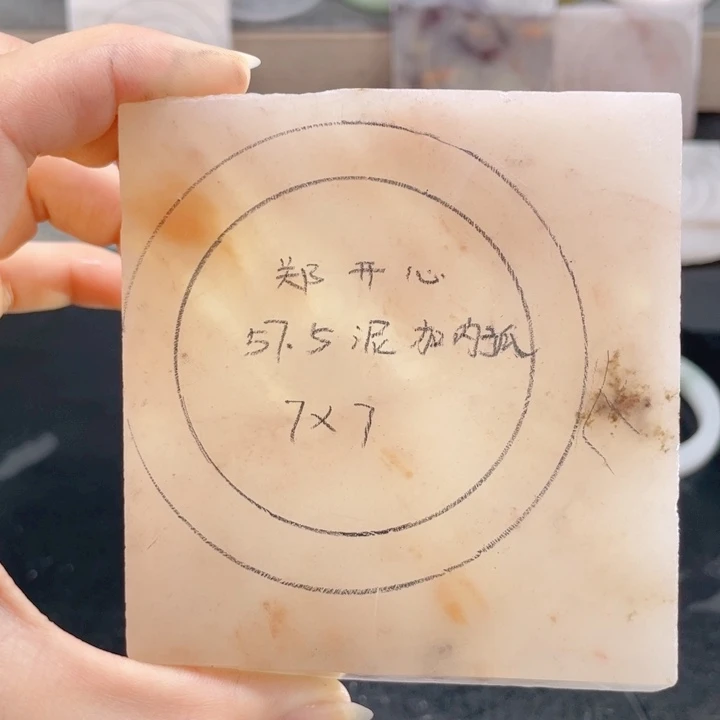 郑开心
57.5泥加内弧
7×7